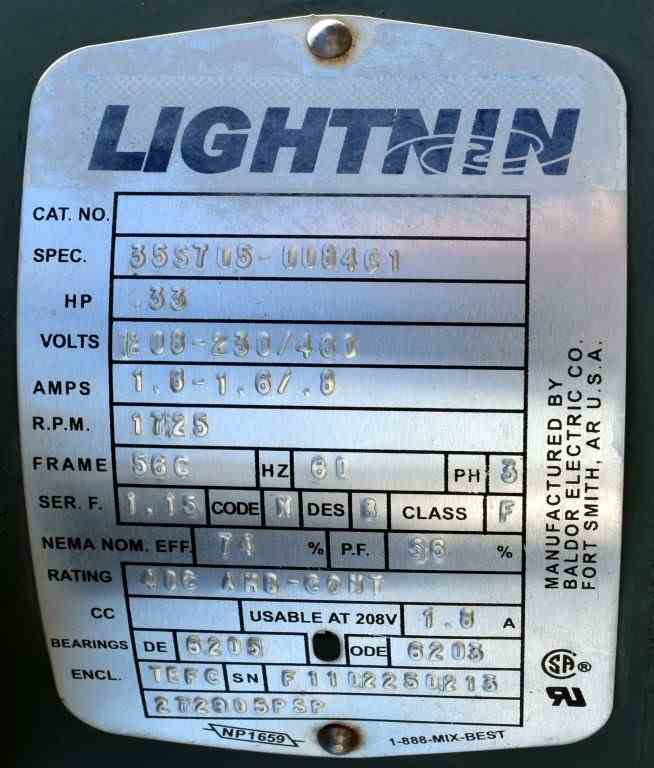 LIGHTNIN
CAT. NO.
SPEC. 35ST05-0084G1
HP .33
VOLTS 208-230/460
AMPS 1.6-1.6/.8
R.P.M. 1725
FRAME 56C HZ 60 PH 3
SER. F. 1.15 CODE DES B CLASS F
NEMA NOM. EFF. 74 % P.F. %
RATING 40C AMB-CONT
CC USABLE AT 208V A
BEARINGS DE 6205 ODE 6203
ENCL. TEFC SN F1102250213
NP1659 1-888-MIX-BEST
MANUFACTURED BY
BALDOR ELECTRIC CO.
FORT SMITH, AR U.S.A.
SA ®